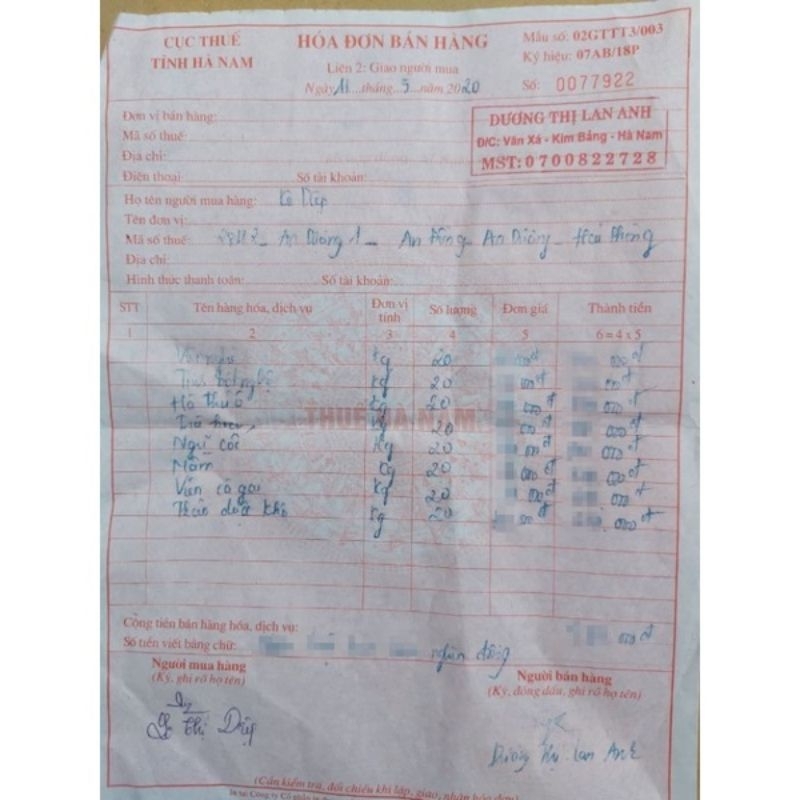 CỤC THUẾ
TỈNH HÀ NAM
HÓA ĐƠN BÁN HÀNG
Liên 2: Giao người mua
Ngày 11 tháng 5 năm 2020
Mẫu số: 02GTTT3/003
Ký hiệu: 07AB/18P
Số: 0077922
Đơn vị bán hàng:
Mã số thuế:
Địa chỉ:
Điện thoại: Số tài khoản:
DƯƠNG THỊ LAN ANH
Đ/C: Văn Xá - Kim Bảng - Hà Nam
MST: 0700822728
Họ tên người mua hàng:
Tên đơn vị:
Mã số thuế: An Dương 1 - An Đồng - An Dương - Hải Phòng
Địa chỉ:
Hình thức thanh toán: Số tài khoản:
STT Tên hàng hóa, dịch vụ Đơn vị tính Số lượng Đơn giá Thành tiền
1 2 3 4 5 6 = 4 x 5
Kg 20 000đ 000đ
Tinh bột nghệ Kg 20 000đ 000đ
Hà thủ ô Kg 20 000đ 000đ
Trà Kg 20 000đ 000đ
Ngũ cốc Kg 20 000đ 000đ
Mầm Kg 20 000đ 000đ
Kg 20 000đ 000đ
Kg 20 000đ 000đ
THUẾ HÀ NAM
Cộng tiền bán hàng hóa, dịch vụ: 000đ
Số tiền viết bằng chữ: ngàn đồng
Người mua hàng
(Ký, ghi rõ họ tên)
Thị Diệp
Người bán hàng
(Ký, đóng dấu, ghi rõ họ tên)
Dương Thị Lan Anh
(Cần kiểm tra, đối chiếu khi lập, giao, nhận hóa đơn)